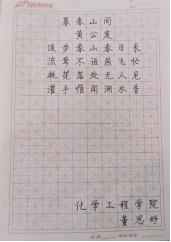 暮春山间
黄公度
缓步春山春日长
流莺不语燕飞忙
桃花落处无人见
濯手惟闻涧水香
化学工程学院
董思妤